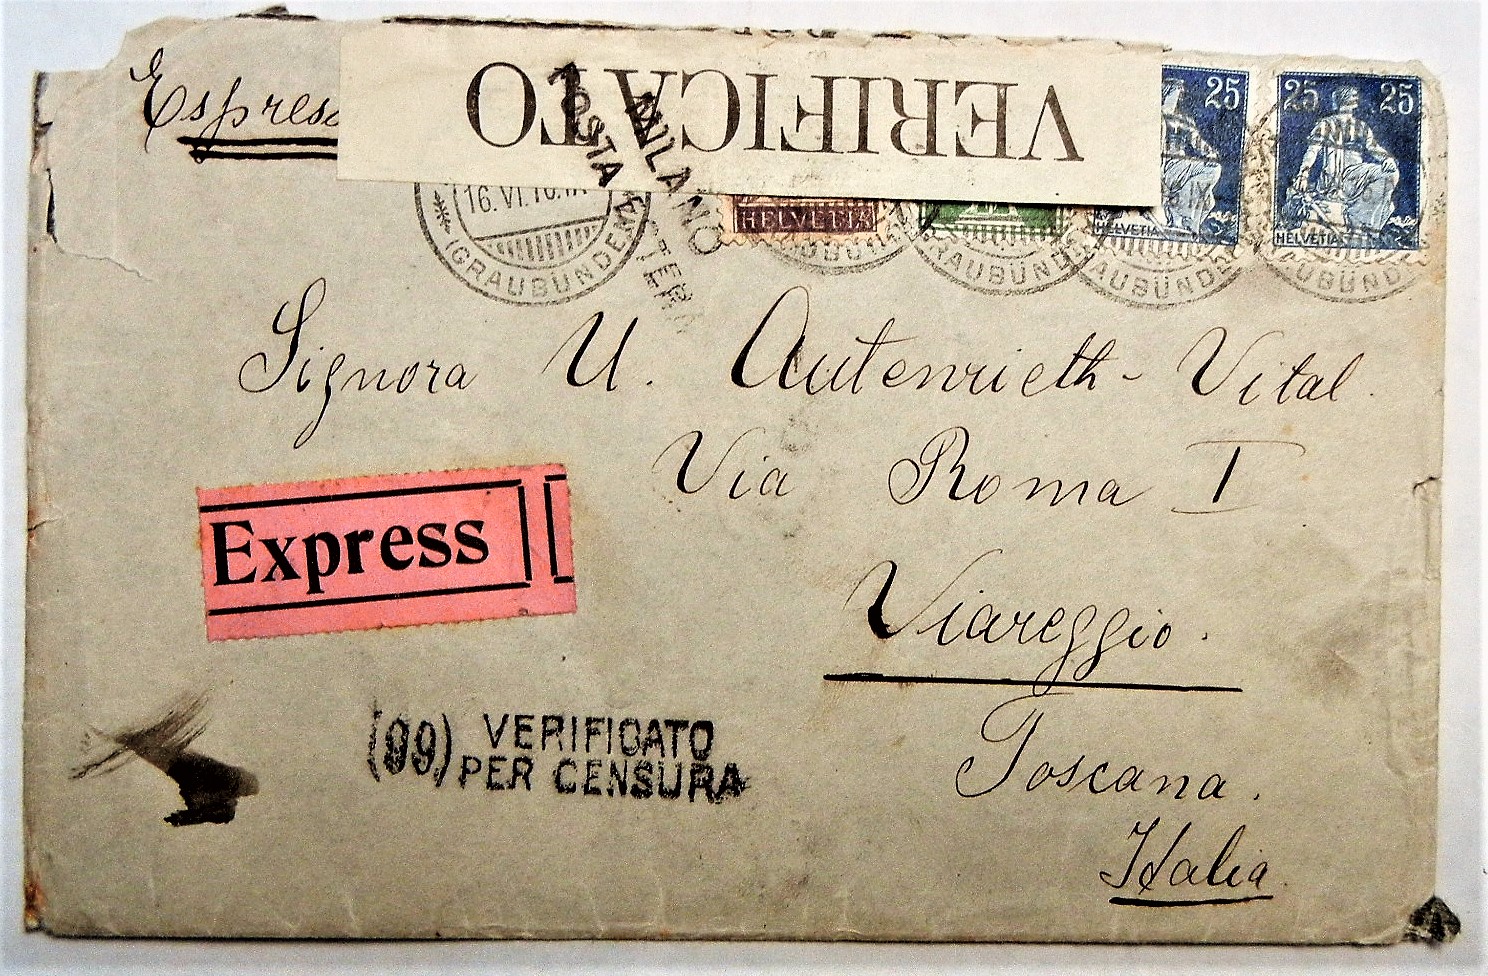 Espresso
VERIFICATO
MILANO
POSTA ESTERA
16.VI.16.IX
(GRAUBÜNDEN)
HELVETIA
25
HELVETIA
25 25
HELVETIA
Signora U. Autenrieth-Vital.
Via Roma I
Viareggio.
Toscana.
Italia.
Express
(99) VERIFICATO
PER CENSURA